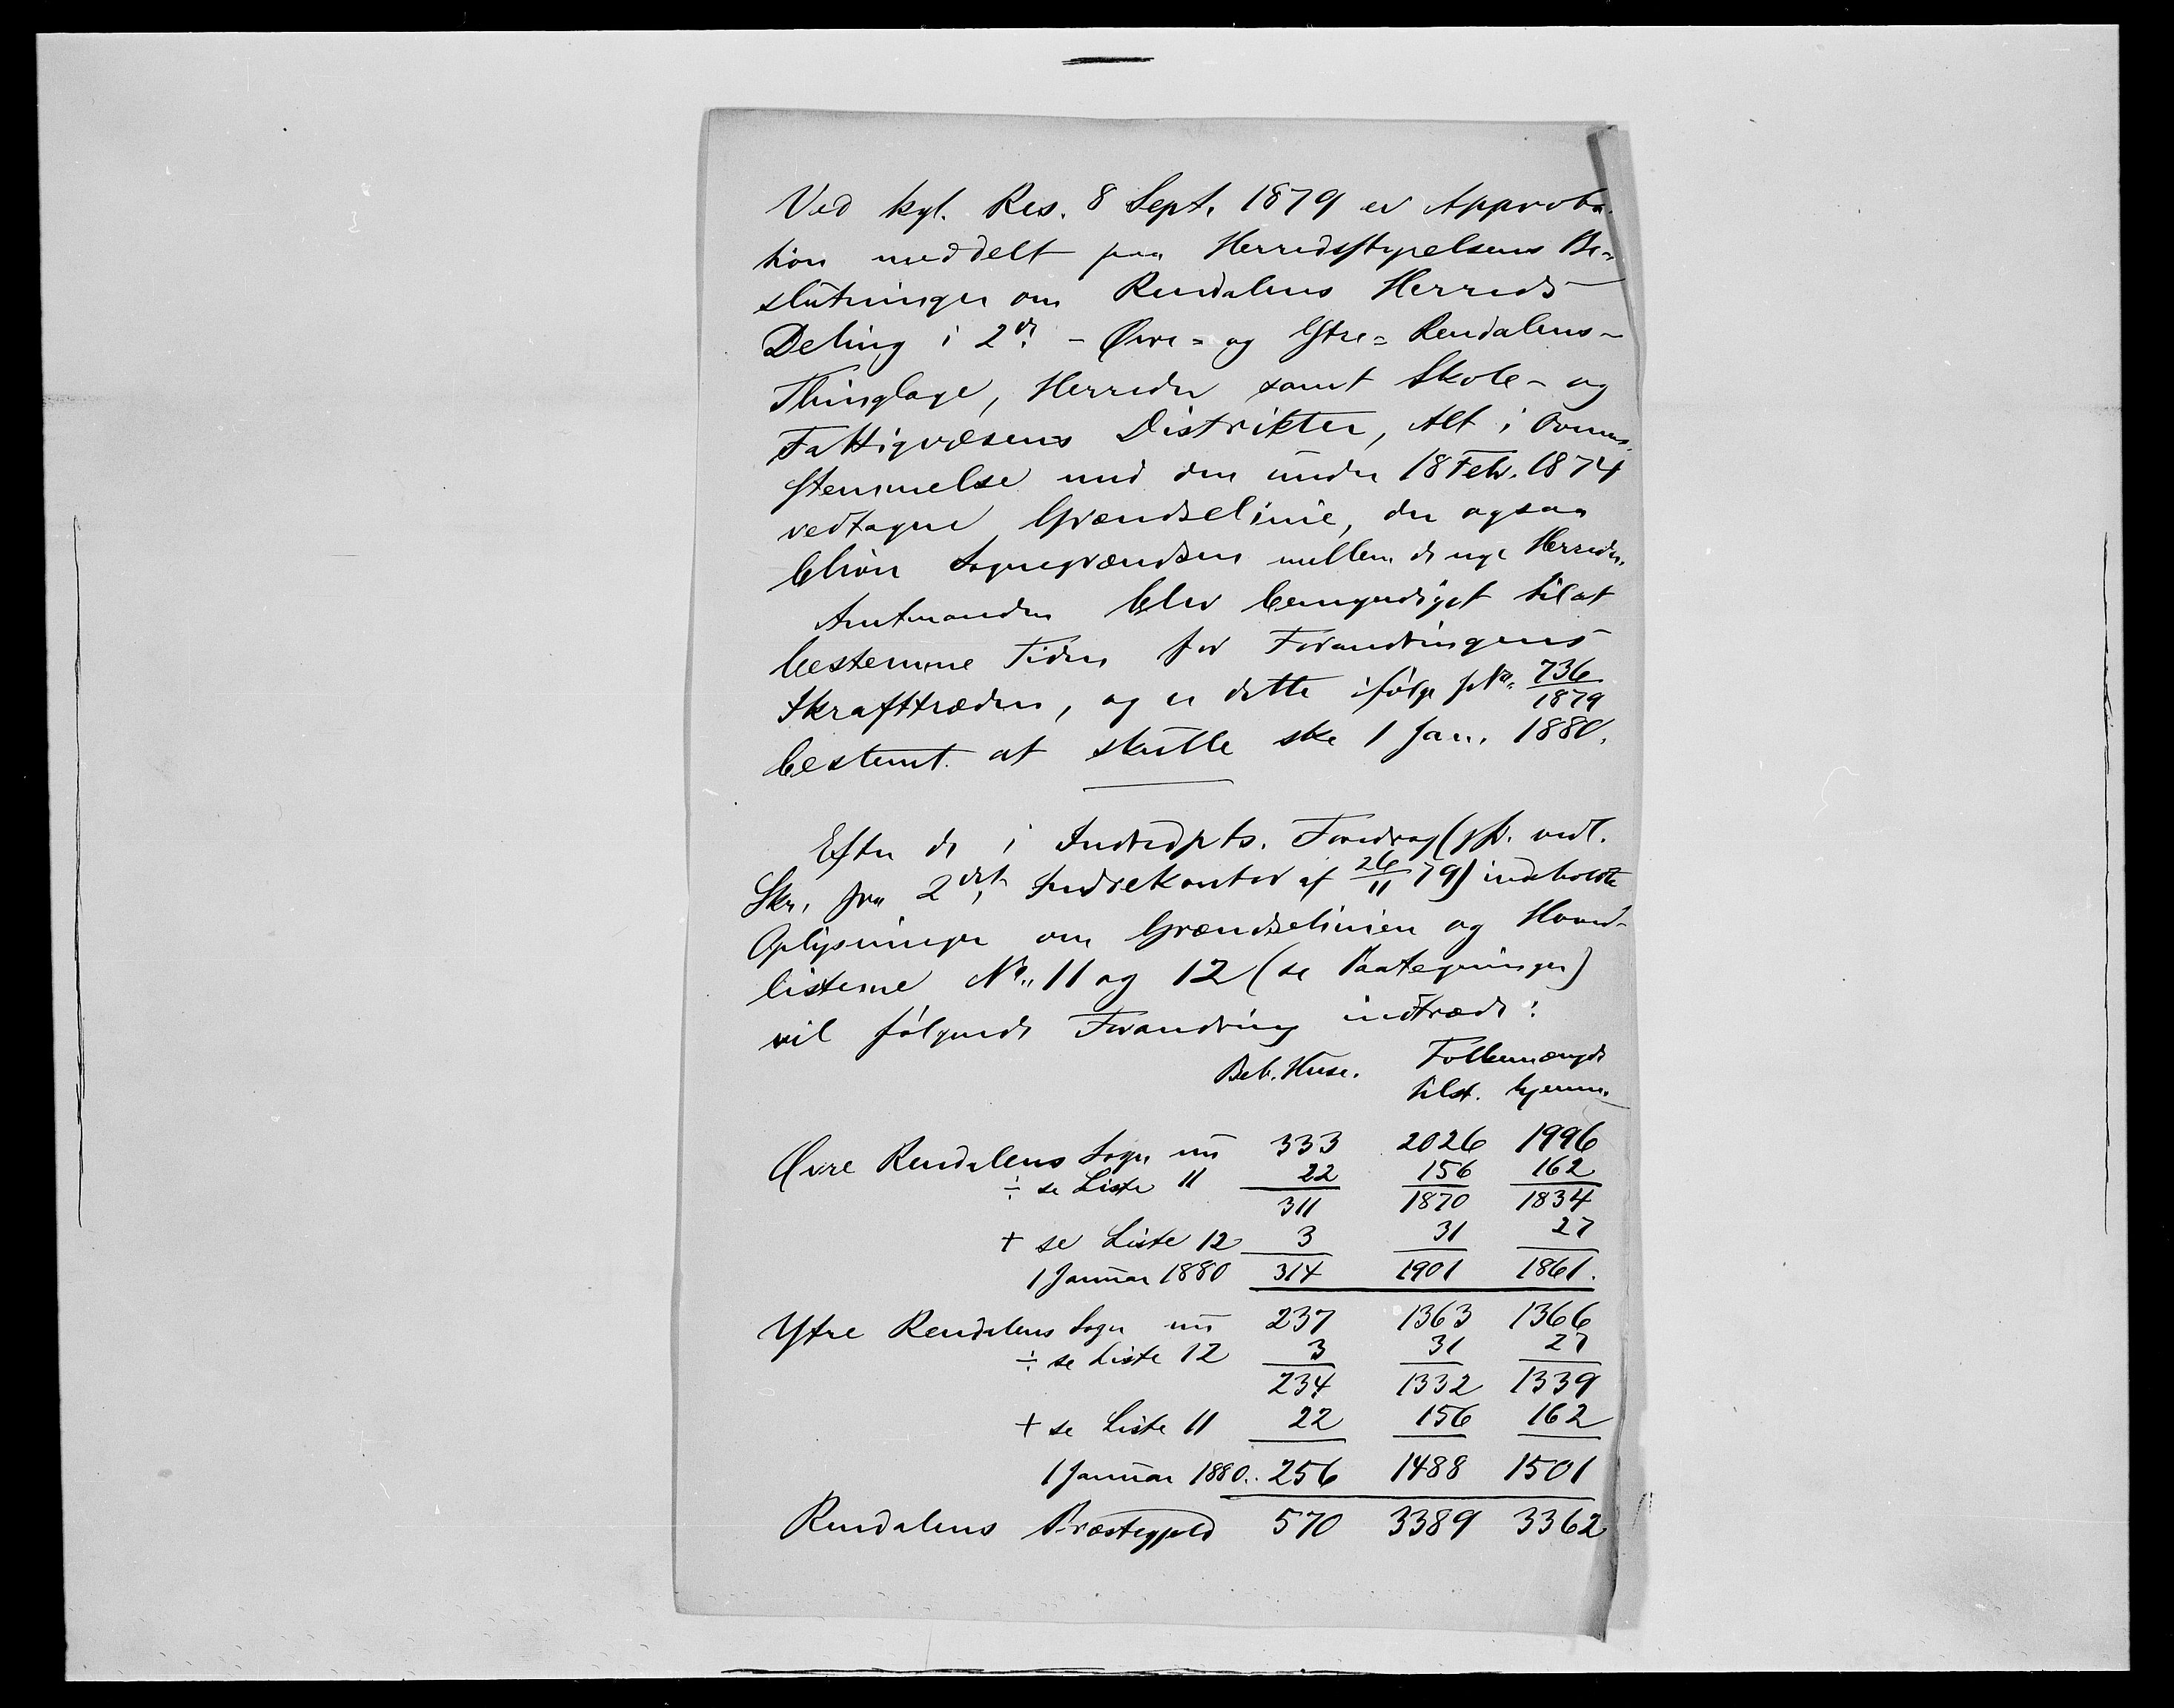 Ved kgl. Res. 8 Sept. 1879 er Approba-
tion meddelt paa Herredsstyrelsens Be-
slutninger om Rendalens Herreds
Deling i 2de - Øvre- og Ytre- Rendalens-
Thinglage, Herreder samt Skole- og
Fattigvæsens Distrikter, Alt i Overens-
stemmelse med den under 18 Febr. 1874
vedtagne Grændselinie, der ogsaa
bliver Sognegrændsen mellem de nye Herreder.
Amtmanden blev bemyndiget til at
bestemme Tiden for Forandringens
Ikrafttræden, og er dette ifølge 736/1879
bestemt at skulle ske 1 Jan. 1880.
Efter de i Indredpts. Foredrag (jfr. vedl.
Skr. fra 2det Indrekontor af 26/11 79) indeholdte
Oplysninger om Grændselinien og Hoved-
listerne No. 11 og 12 (se Paategninger)
vil følgende Forandring indtræde:
Beb. Huse. Folkemængde
tilst. hjemm.
Øvre Rendalens Sogn nu 333 2026 1996
÷ se Liste 11 22 156 162
311 1870 1834
+ se Liste 12 3 31 27
1 Januar 1880 314 1901 1861.
Ytre Rendalens Sogn nu 237 1363 1366
÷ se Liste 12 3 31 27
234 1332 1339
+ se Liste 11 22 156 162
1 Januar 1880. 256 1488 1501
Rendalens Præstegjeld 570 3389 3362